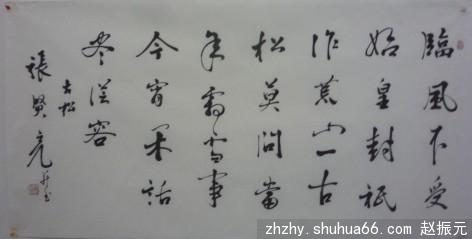 臨風不受
始皇封祇
作荒山一古
松莫問當
年霜雪事
今宵閑話
冬從容
古松
張賢亮并書
zhzhy.shuhua66.com 赵振元